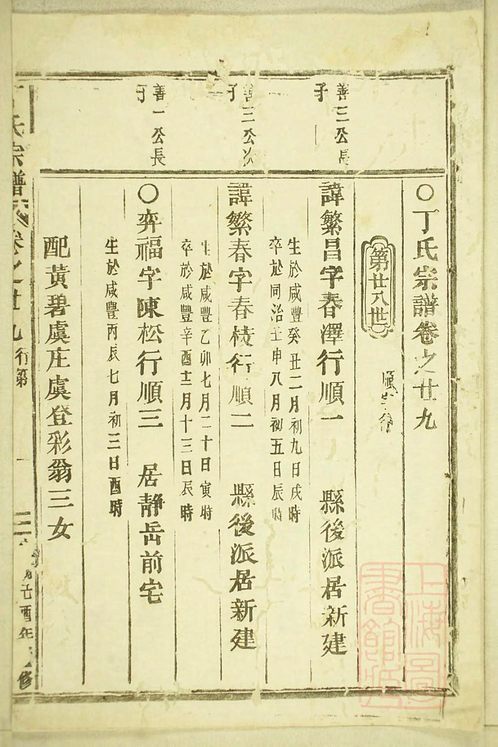 ○丁氏宗譜卷之廿九
第廿八世
順字行
善三公長子
諱繁昌字春澤行順一 縣後派居新建
生於咸豐癸丑二月初九日戌時
卒於同治壬申八月初五日辰時
善三公次子
諱繁春字春枝行順二 縣後派居新建
生於咸豐乙卯七月二十日寅時
卒於咸豐辛酉十二月十三日辰時
善一公長子
○弈福字陳松行順三 居靜岳前宅
生於咸豐丙辰七月初三日酉時
配黃碧虞庄虞登彩翁三女
丁氏宗譜 卷之廿九 行第 一
上海圖書館藏